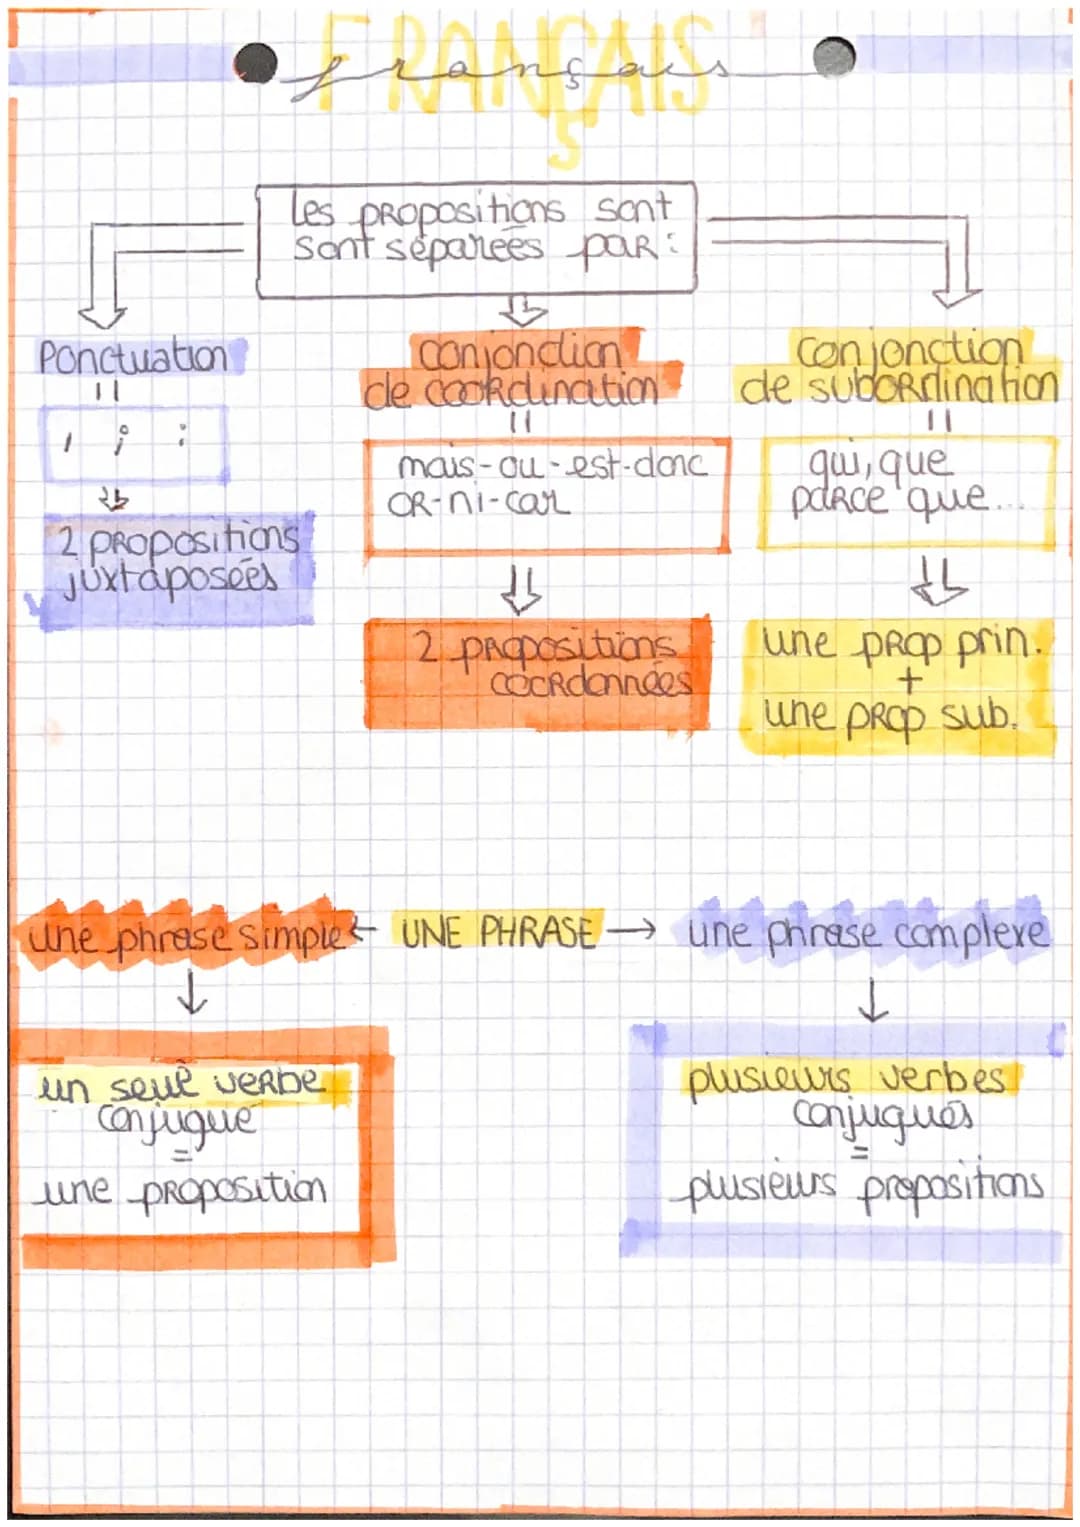 FRANÇAIS
français
Les propositions sont
sont séparées par :
Ponctuation
, ; :
2 propositions
juxtaposées
conjonction
de coordination
mais-ou-est-donc
OR-ni-car
2 propositions
coordonnées
conjonction
de subordination
qui, que
parce que...
une prop prin.
+
une prop sub.
une phrase simple ← UNE PHRASE → une phrase complexe
un seul verbe
conjugué
=
une proposition
plusieurs verbes
conjugués
=
plusieurs propositions